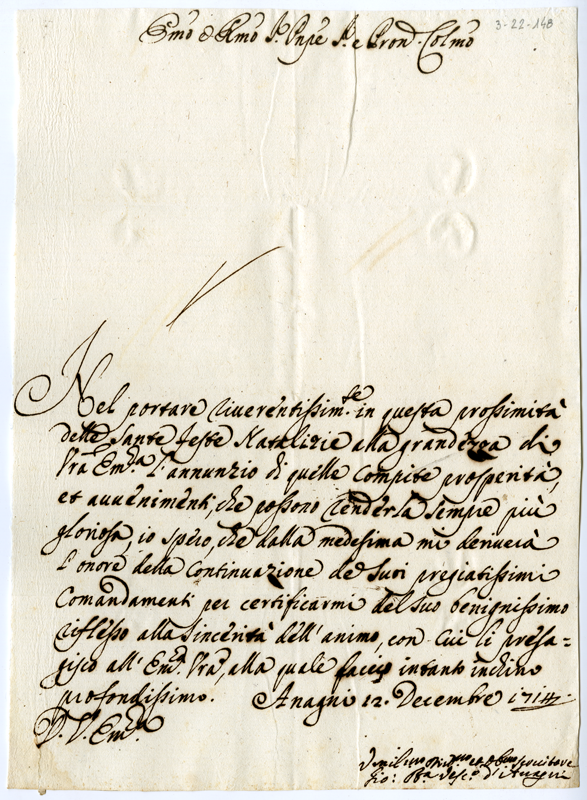 Emo e Rmo Sr. Pnpe Sr. e Pron. Colmo
3-22-148
Nel portare riverentissim.te in questa prossimità
delle Sante Feste Natalizie alla grandezza di
Vra Em.a l'annunzio di quelle compite prosperità,
et avvenimenti, che possono renderla sempre più
gloriosa, io spero, che dalla medesima mi deriverà
l'onore della continuazione de suoi pregiatissimi
Comandamenti per certificarmi del suo benignissimo
riflesso alla sincerità dell'animo, con cui li presa=
gisco all'Em.a Vra, alla quale facio intanto inchino
profondissimo. Anagni 12. Decembre 1714
D. V. Em.a
Vmiliss.mo et servitore
Gio: Bta Vesc.o d'Anagni